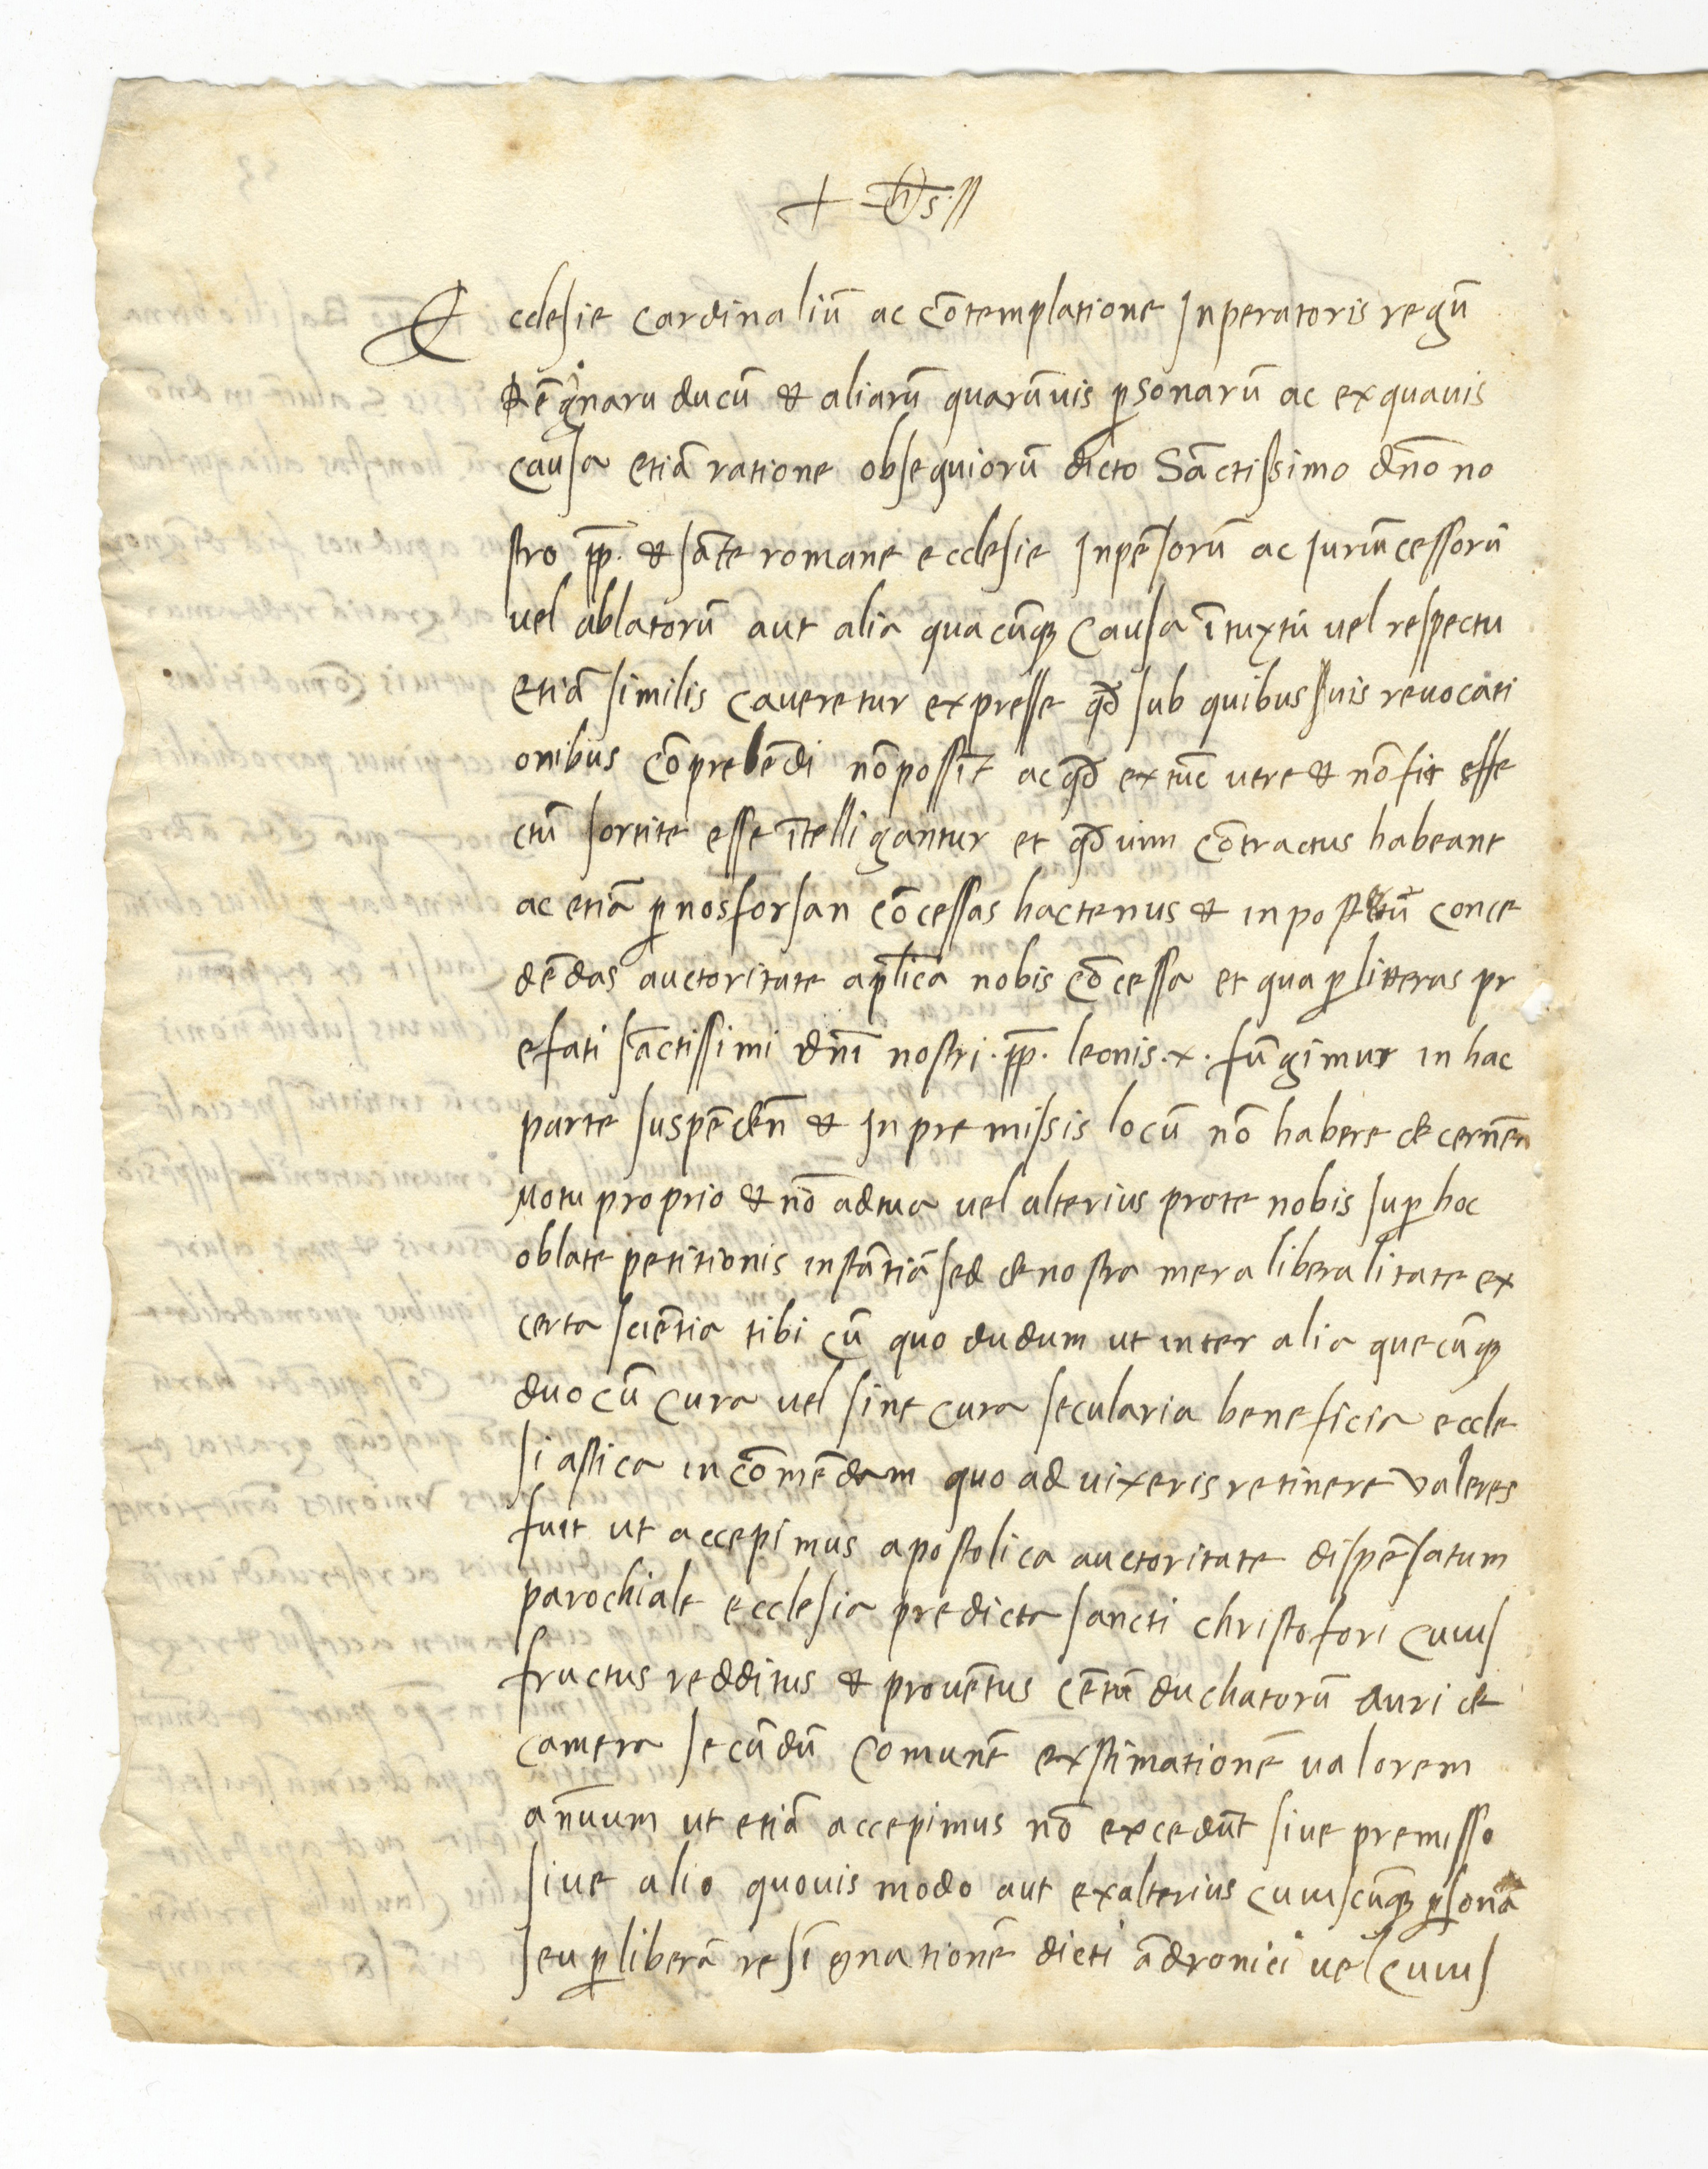 + yhs //
Ecclesie cardinaliũ ac cõtemplatione Jnperatoris regũ
Rẽginaru ducũ & aliarũ quarũuis ꝑsonarũ ac ex quauis
causa etiã ratione obsequiorũ dicto Sãctissimo dño no
stro .pp. & sãcte romane ecclesie Jnpẽsorũ ac Juriũ cessorũ
uel ablatorũ aut alia quacũqꝫ causa ĩtuxtũ uel respectu
etiã similis caueretur expresse qđ sub quibussuis reuocati
onibus cõprehẽdi nõ possĩt ac qđ ex tũc uere & nõ fit effe
ctũ sortite esse ĩtelligantur et qđ uim cõtractus habeant
ac etiã ꝑ nos forsan cõcessas hactenus & in posterũ conce
dẽdas auctoritate aplica nobis cõcessa et qua ꝑ litteras pr
efati sãctissimi dñi nostri .pp. leonis .x. fũgimur in hac
parte suspẽdeñ & Jn premissis locũ nõ habere decerneñ
Motu proprio & nõ ad tua uel alterius pro te nobis suꝑ hoc
oblate petitionis instãtiã sed de nostra mera liberalitate ex
certa sciẽtia tibi cũ quo dudum ut inter alia quecũqꝫ
duo cũ cura uel sine cura secularia beneficia eccle
siastica in cõmẽdam quo ad uixeris retinere valeres
fuit ut accepimus apostolica auctoritate dispẽsatum
parochiale ecclesia predicta sancti christofori cuius
fructus redditus & prouẽtus cẽtũ duchatorũ auri de
camera secũdũ comunẽ exstimationẽ valorem
anũum ut etiã accepimus nõ excedũt siue premisso
siue alio quouis modo aut ex alterius cuiuscũqꝫ ꝑsona
seu ꝑ liberã resĩgnationẽ dicti ãdronici uel cuius